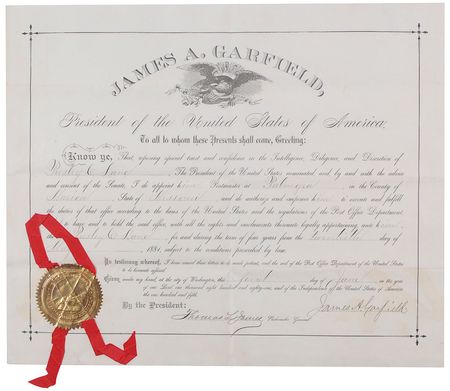 JAMES A. GARFIELD,
President of the United States of America,
To all to whom these Presents shall come, Greeting:
Know ye, That, reposing special trust and confidence in the Intelligence, Diligence, and Discretion of
The President of the United States nominated and by and with the advice
and consent of the Senate, I do appoint him Postmaster at Palmyra in the County of
Marion State of Missouri and do authorize and empower him to execute and fulfil the
duties of that office according to the laws of the United States and the regulations of the Post Office Department
to have and to hold the said office, with all the rights and emoluments thereunto legally appertaining unto him
during the term of four years from the day of
1881, subject to the conditions prescribed by law.
In testimony whereof, I have caused these letters to be made patent, and the seal of the Post Office Department of the United States
to be hereunto affixed.
Given under my hand, at the city of Washington, this day of June in the year
of our Lord one thousand eight hundred and eighty-one, and of the Independence of the United States of America
the one hundred and fifth.
By the President:
James A. Garfield
Thomas L. James, Postmaster General